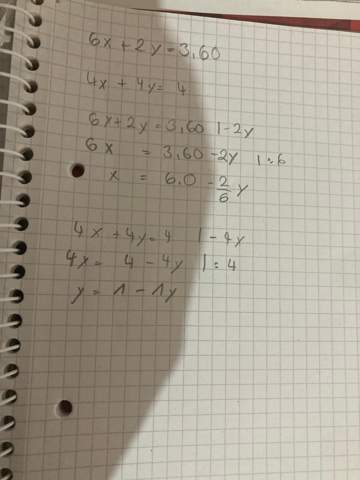 6x + 2y = 3,60
4x + 4y = 4
6x + 2y = 3,60 | - 2y
6x = 3,60 - 2y | : 6
x = 6.0 - 2/6 y
4x + 4y = 4 | - 4y
4x = 4 - 4y | : 4
y = 1 - 1y